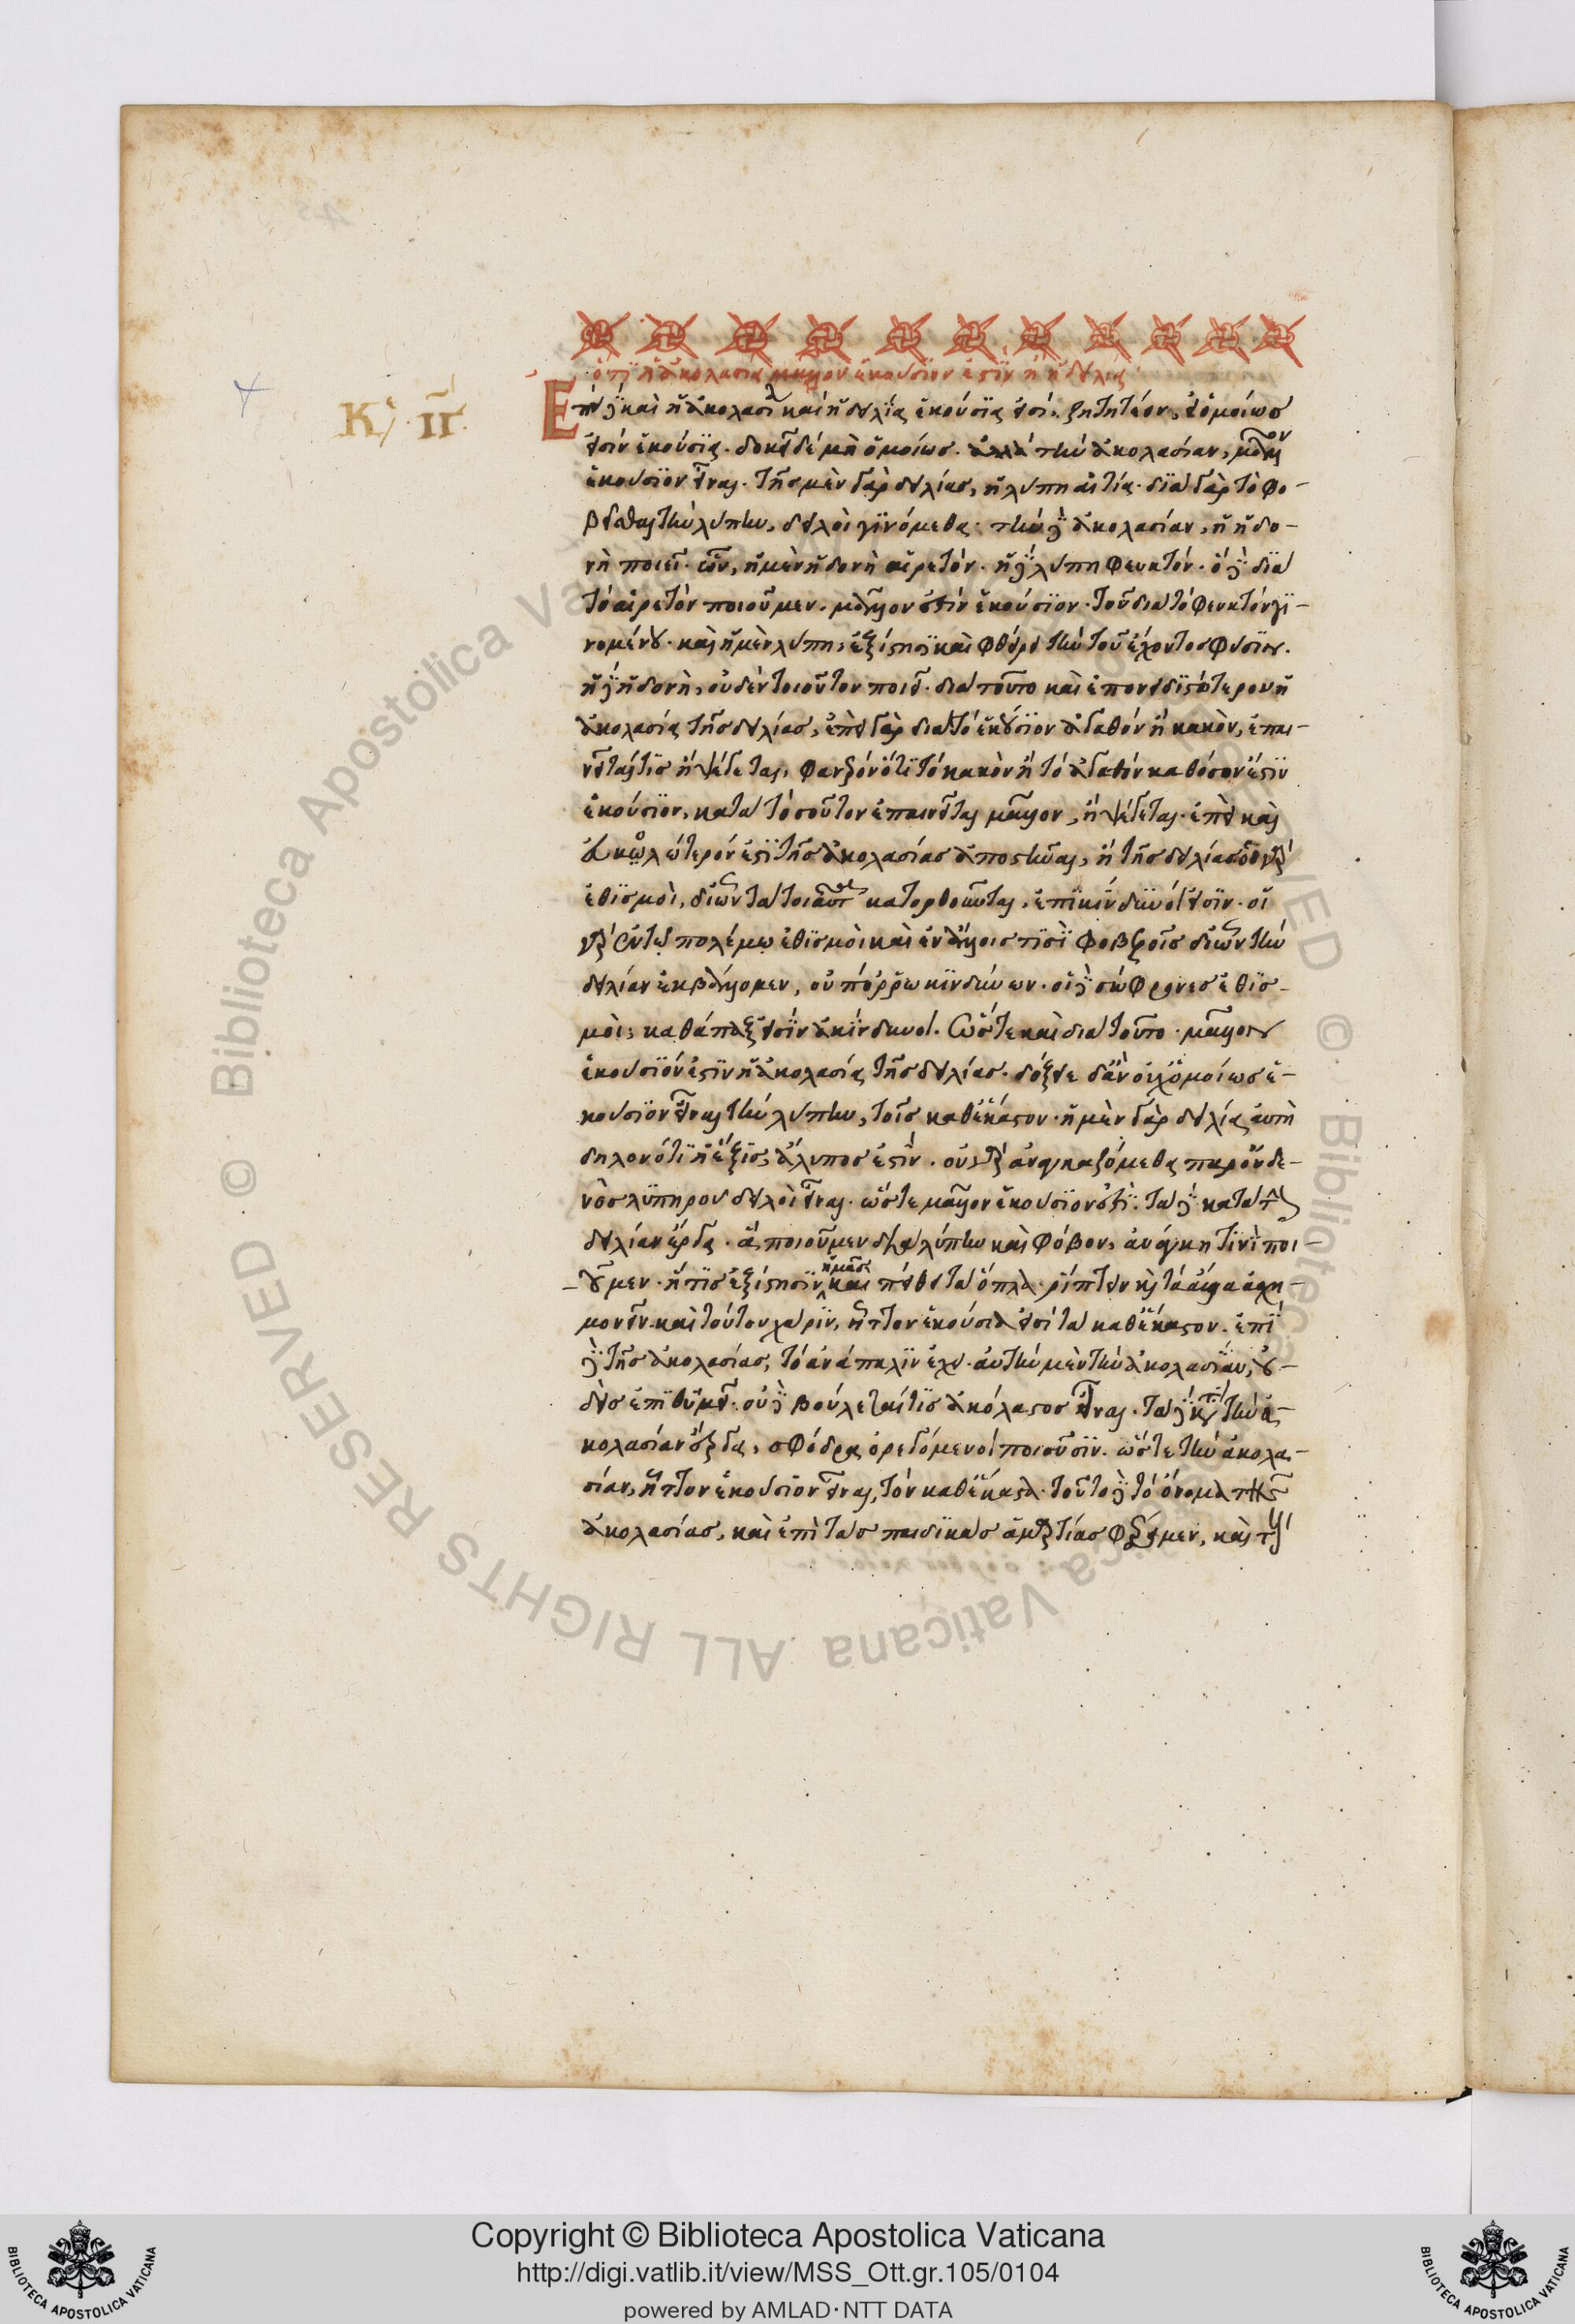 Κε ιγ
ὅτι ἡ ἀκολασία μᾶλλον ἑκούσιον ἐστὶν ἢ ἡ δειλία
Ἐπεὶ δὲ καὶ ἡ ἀκολασία καὶ ἡ δειλία ἑκούσια εἰσί, ζητητέον, εἰ ὁμοίωσ
εἰσὶν ἑκούσια. δοκεῖ δὲ μὴ ὁμοίωσ. ἀλλὰ τὴν ἀκολασίαν, μᾶλλον
ἑκούσιον εἶναι. τῆσ μὲν γὰρ δειλίασ, ἡ λύπη αἰτία. διὰ γὰρ τὸ φο-
βεῖσθαι τὴν λύπην, δειλοὶ γινόμεθα. τὴν δὲ ἀκολασίαν, ἡ ἡδο-
νὴ ποιεῖ. ὧν, ἡ μὲν ἡδονὴ αἱρετόν. ἡ δὲ λύπη φευκτόν. ὁ δὲ διὰ
τὸ αἱρετὸν ποιοῦμεν. μᾶλλον ἐστὶν ἑκούσιον. τοῦ διὰ τὸ φευκτὸν γι-
νομένου. καὶ ἡ μὲν λύπη, ἐξίστησι καὶ φθείρει τὴν τοῦ ἔχοντοσ φύσιν.
ἡ δὲ ἡδονὴ, οὐδὲν τοιοῦτον ποιεῖ. διὰ τοῦτο καὶ ἐπονειδιστότερον ἡ
ἀκολασία τῆσ δειλίασ, ἐπεὶ γὰρ διὰ τὸ ἑκούσιον ἀγαθὸν ἢ κακὸν, ἐπαι-
νεῖται τὶσ ἢ ψέγεται, φανερὸν ὅτι τὸ κακὸν ἢ τὸ ἀγαθὸν καθόσον ἐστὶν
ἑκούσιον, κατὰ τοσοῦτον ἐπαινεῖται μᾶλλον, ἢ ψέγεται. ἐπεὶ καὶ
εὐκολώτερόν ἐστι τῆσ ἀκολασίασ ἀποστῆναι, ἢ τῆσ δειλίασ οἱ γὰρ
ἐθισμοὶ, δι' ὧν τὰ τοιαῦτα κατορθοῦται, ἐπικίνδυνοί εἰσιν. οἱ
γὰρ ἐν τῷ πολέμῳ ἐθισμοὶ καὶ ἐν ἄλλοισ τισὶ φοβεροῖσ δι' ὧν τὴν
δειλίαν ἐκβάλλομεν, οὐ πόρρω κινδύνων. οἱ δὲ σώφρονεσ ἐθισ-
μοὶ, καθάπαξ εἰσὶν ἀκίνδυνοι. ὥστε καὶ διὰ τοῦτο. μᾶλλον
ἑκούσιόν ἐστιν ἡ ἀκολασία τῆσ δειλίασ. δόξειε δ' ἂν οὐχ ὁμοίωσ ἑ-
κούσιον εἶναι τὴν λύπην, τοῖσ καθέκαστον. ἡ μὲν γὰρ δειλία αὐτὴ
δηλονότι ἡ ἕξισ, ἄλυποσ ἐστίν. οὐ γὰρ ἀναγκαζόμεθα παρ' οὐδε-
νὸσ λυπηροῦ δειλοὶ εἶναι. ὥστε μᾶλλον ἑκούσιον ἐστὶ. τὰ δὲ κατὰ τὴν
δειλίαν ἔργα. ἃ ποιοῦμεν διὰ λύπην καὶ φόβον, ἀνάγκῃ τινὶ ποι-
οῦμεν. ἥτισ ἐξίστησιν ἡμᾶσ καὶ πείθει τὰ ὅπλα ῥίπτειν καὶ τὰ ἄλλα ἀσχη-
μονεῖν. καὶ τούτου χάριν, ἧττον ἑκούσια εἰσὶ τὰ καθέκαστον. ἐπὶ
δὲ τῆσ ἀκολασίασ, τὸ ἀνάπαλιν ἔχει. αὐτὴν μὲν τὴν ἀκολασίαν, οὐ-
δεὶσ ἐπιθυμεῖ. οὐδὲ βούλεται τὶσ ἀκόλαστοσ εἶναι. τὰ δὲ κατὰ τὴν ἀ-
κολασίαν ἔργα, σφόδρα ὀρεγόμενοι ποιοῦσιν. ὥστε τὴν ἀκολα-
σίαν, ἧττον ἑκούσιον εἶναι, τῶν καθέκαστα. τοῦτο δὲ τὸ ὄνομα τῆσ
ἀκολασίασ, καὶ ἐπὶ τὰσ παιδικὰσ ἁμαρτίασ φέρομεν, καὶ
Copyright © Biblioteca Apostolica Vaticana
http://digi.vatlib.it/view/MSS_Ott.gr.105/0104
powered by AMLAD·NTT DATA
BIBLIOTECA APOSTOLICA VATICANA
BIBLIOTECA APOSTOLICA VATICANA
© Biblioteca Apostolica Vaticana ALL RIGHTS RESERVED